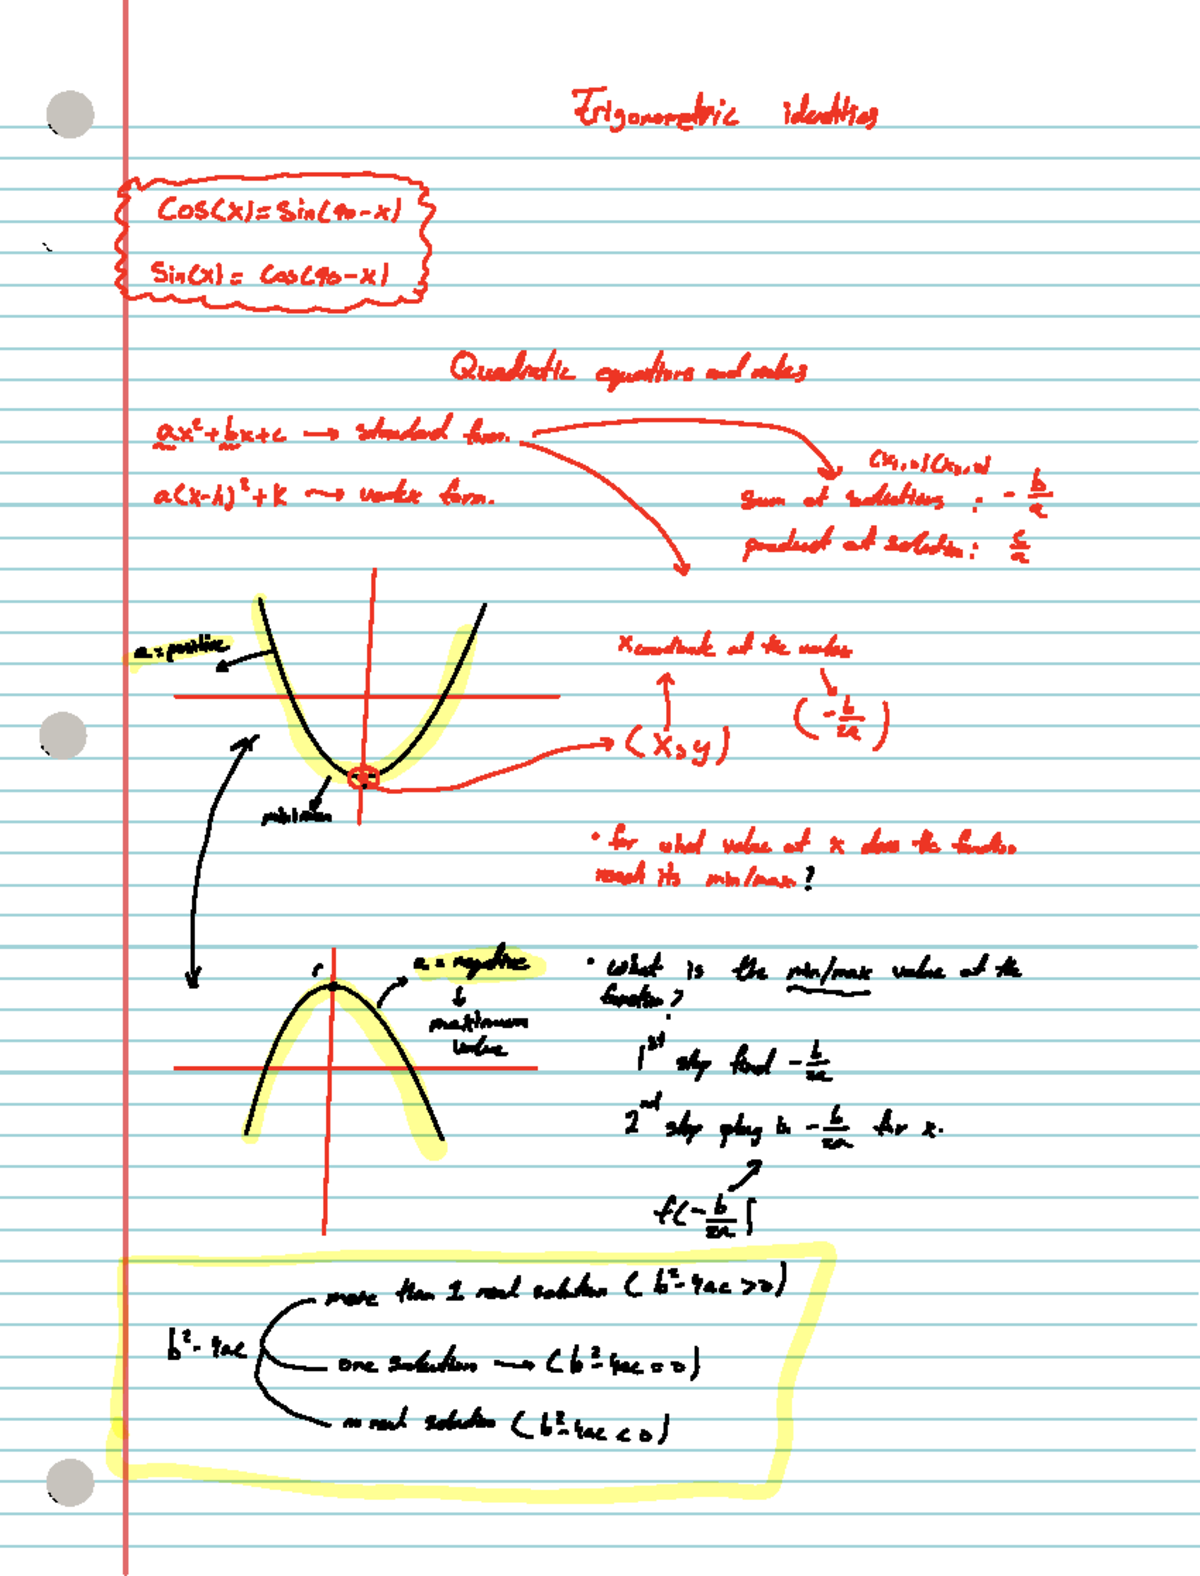 Trigonometric identities
Cos(x) = Sin(90-x)
Sin(x) = Cos(90-x)
Quadratic equations and rules
ax²+bx+c → standard form.
a(x-h)²+K → vertex form.
(x₁,0)(x₂,0)
sum of solutions : - b/a
product of solution: c/a
a = positive
x coordinate of the vertex
(-b/2a)
(x,y)
minimum
• for what value of x does the function
reach its min/max?
a = negative
maximum
value
• what is the min/max value of the
function?
1st step find -b/2a
2nd step plug in -b/2a for x.
f(-b/2a)
more than 1 real solution (b²-4ac >0)
b²-4ac
one solution → (b²-4ac = 0)
no real solution (b²-4ac < 0)